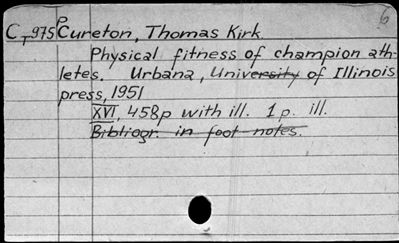 6
P
CT975 Cureton, Thomas Kirk
Physical fitness of champion ath-
letes. Urbana, University of Illinois
press, 1951
XVI, 458p with ill. 1 p. ill.
Bibliogr. in foot-notes.